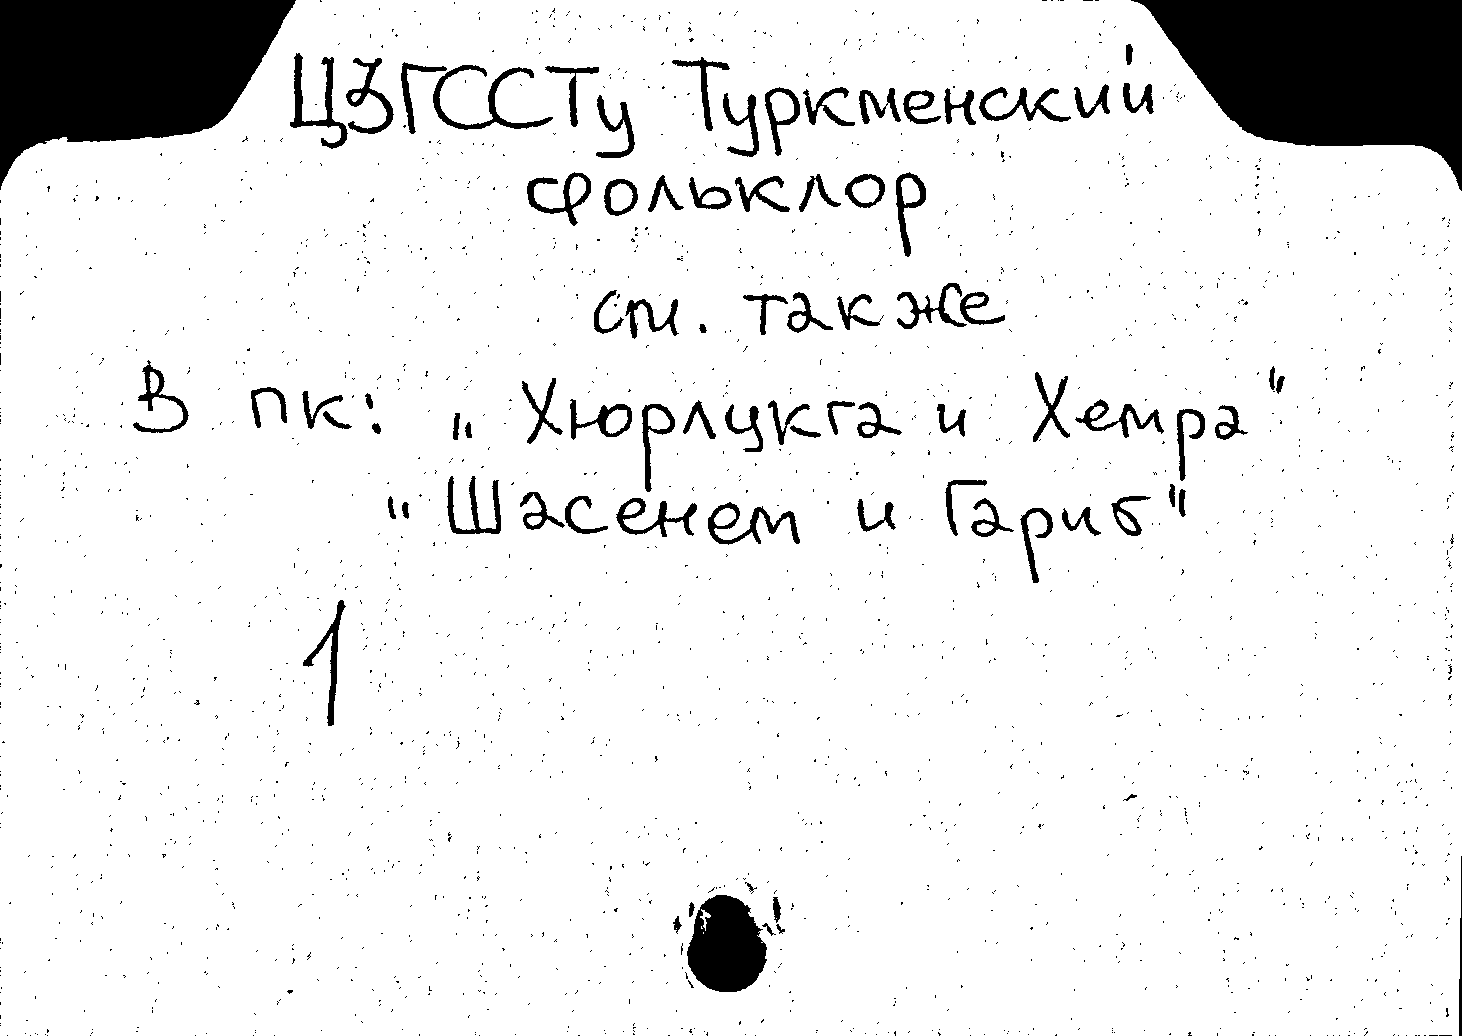 ЦЗГССТу Туркменский
фольклор
см. также
В пк: „Хюрлукга и Хемра"
"Шасенем и Гариб"
1